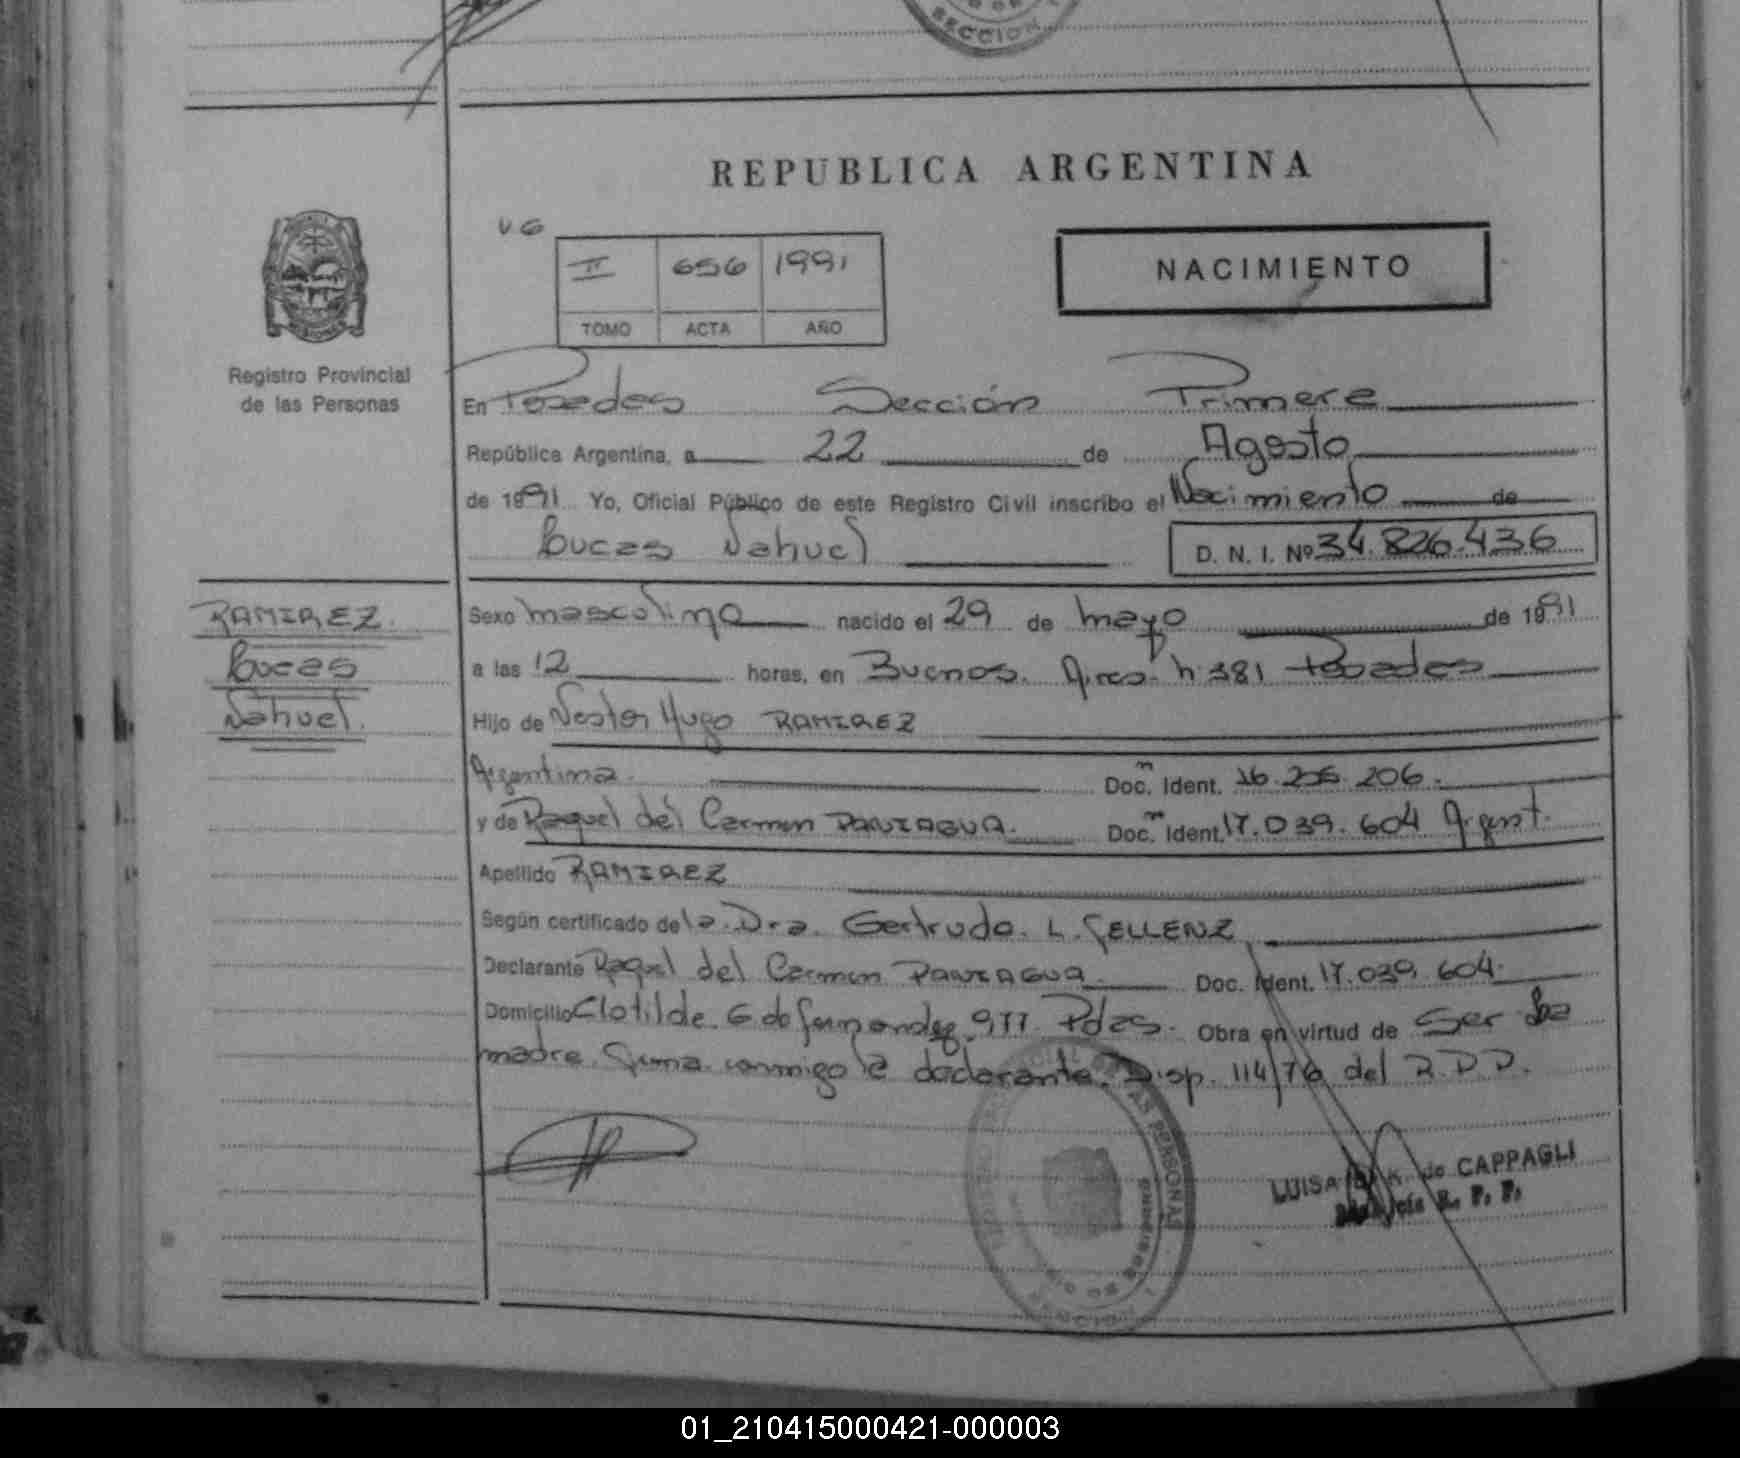 SECCION
REPUBLICA ARGENTINA
NACIMIENTO
II 656 1991
TOMO ACTA AÑO
Registro Provincial
de las Personas
En Posadas Sección Primera
República Argentina, a 22 de Agosto
de 1991 Yo, Oficial Público de este Registro Civil inscribo el Nacimiento de
Lucas Nahuel D. N. I. Nº 34.826.436
RAMIREZ.
Lucas
Nahuel.
Sexo masculino nacido el 29 de mayo de 1991
a las 12 horas, en Buenos Aires n 381 Posadas
Hijo de Nestor Hugo RAMIREZ
Argentina. Doc. Ident. 16.206.
y de Raquel del Carmen PANIAGUA. Doc. Ident. 17.039.604 Argent.
Apellido RAMIREZ
Según certificado de la Dra. Gertrudo. L. GELLENZ
Declarante Raquel del Carmen PANIAGUA Doc. Ident. 17.039.604.
Domicilio Clotilde. G de fernandez 977. Pdas. Obra en virtud de Ser la
madre. firma conmigo la declarante. Disp. 114/76 del R.D.D.
LUISA K. de CAPPAGLI
01_210415000421-000003